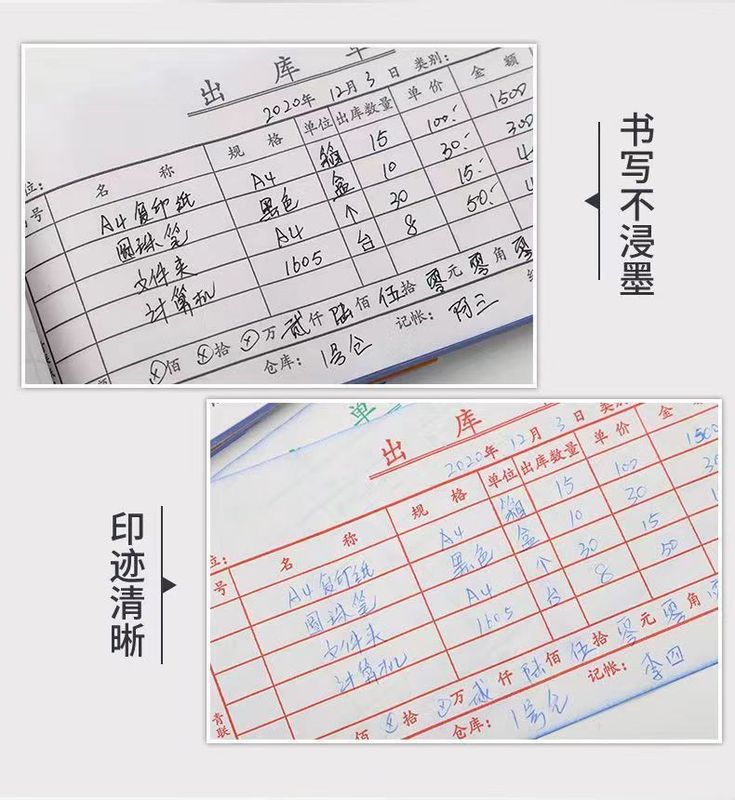 出 库 单
2020年 12月 3日 类别:
名 称 规 格 单位 出库数量 单价 金 额
A4复印纸 A4 箱 15 100.- 1500
圆珠笔 黑色 盒 10 30.- 300
文件夹 A4 个 30 15.- 4
计算机 1605 台 8 50.- 4
佰 拾 万 贰 仟 陆 佰 伍 拾 零 元 零 角 零
仓库: 1号仓 记帐: 阿三
书写不浸墨
印迹清晰
单
出 库
2020年 12月 3日 类别
名 称 规 格 单位 出库数量 单价 金
号 A4复印纸 A4 箱 15 100 1500
圆珠笔 黑色 盒 10 30 30
文件夹 A4 个 30 15 1
计算机 1605 台 8 50
佰 拾 万 贰 仟 陆 佰 伍 拾 零 元 零 角
仓库: 1号仓 记帐: 李四
青联